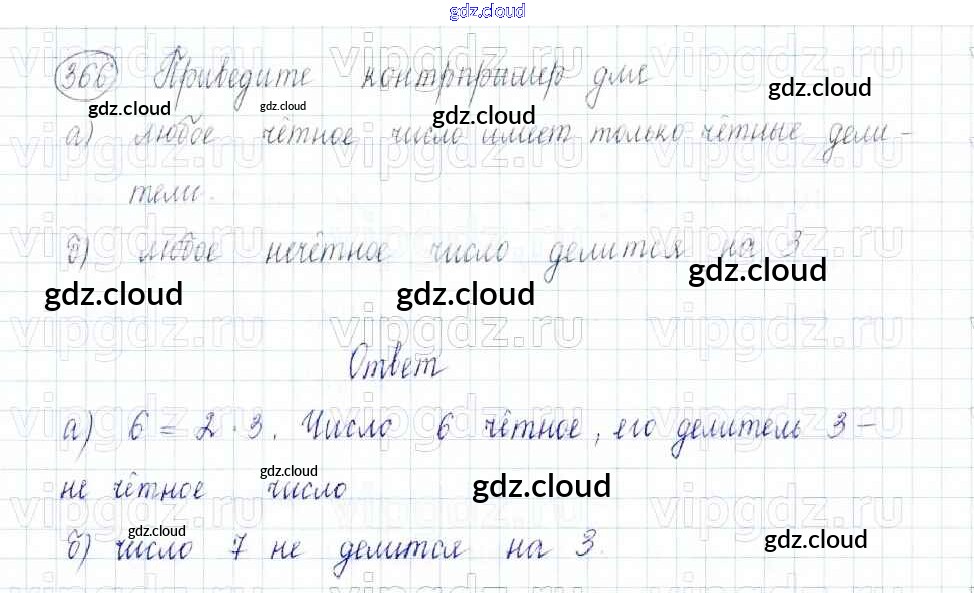 gdz.cloud
366 Приведите контрпример для
gdz.cloud gdz.cloud gdz.cloud gdz.cloud
а) любое чётное число имеет только чётные дели-
тели.
б) любое нечётное число делится на 3
gdz.cloud gdz.cloud gdz.cloud
vipgdz.ru vipgdz.ru vipgdz.ru
Ответ
а) 6 = 2 · 3. Число 6 чётное, его делитель 3 -
gdz.cloud gdz.cloud
не чётное число
gdz.cloud gdz.cloud
б) число 7 не делится на 3.